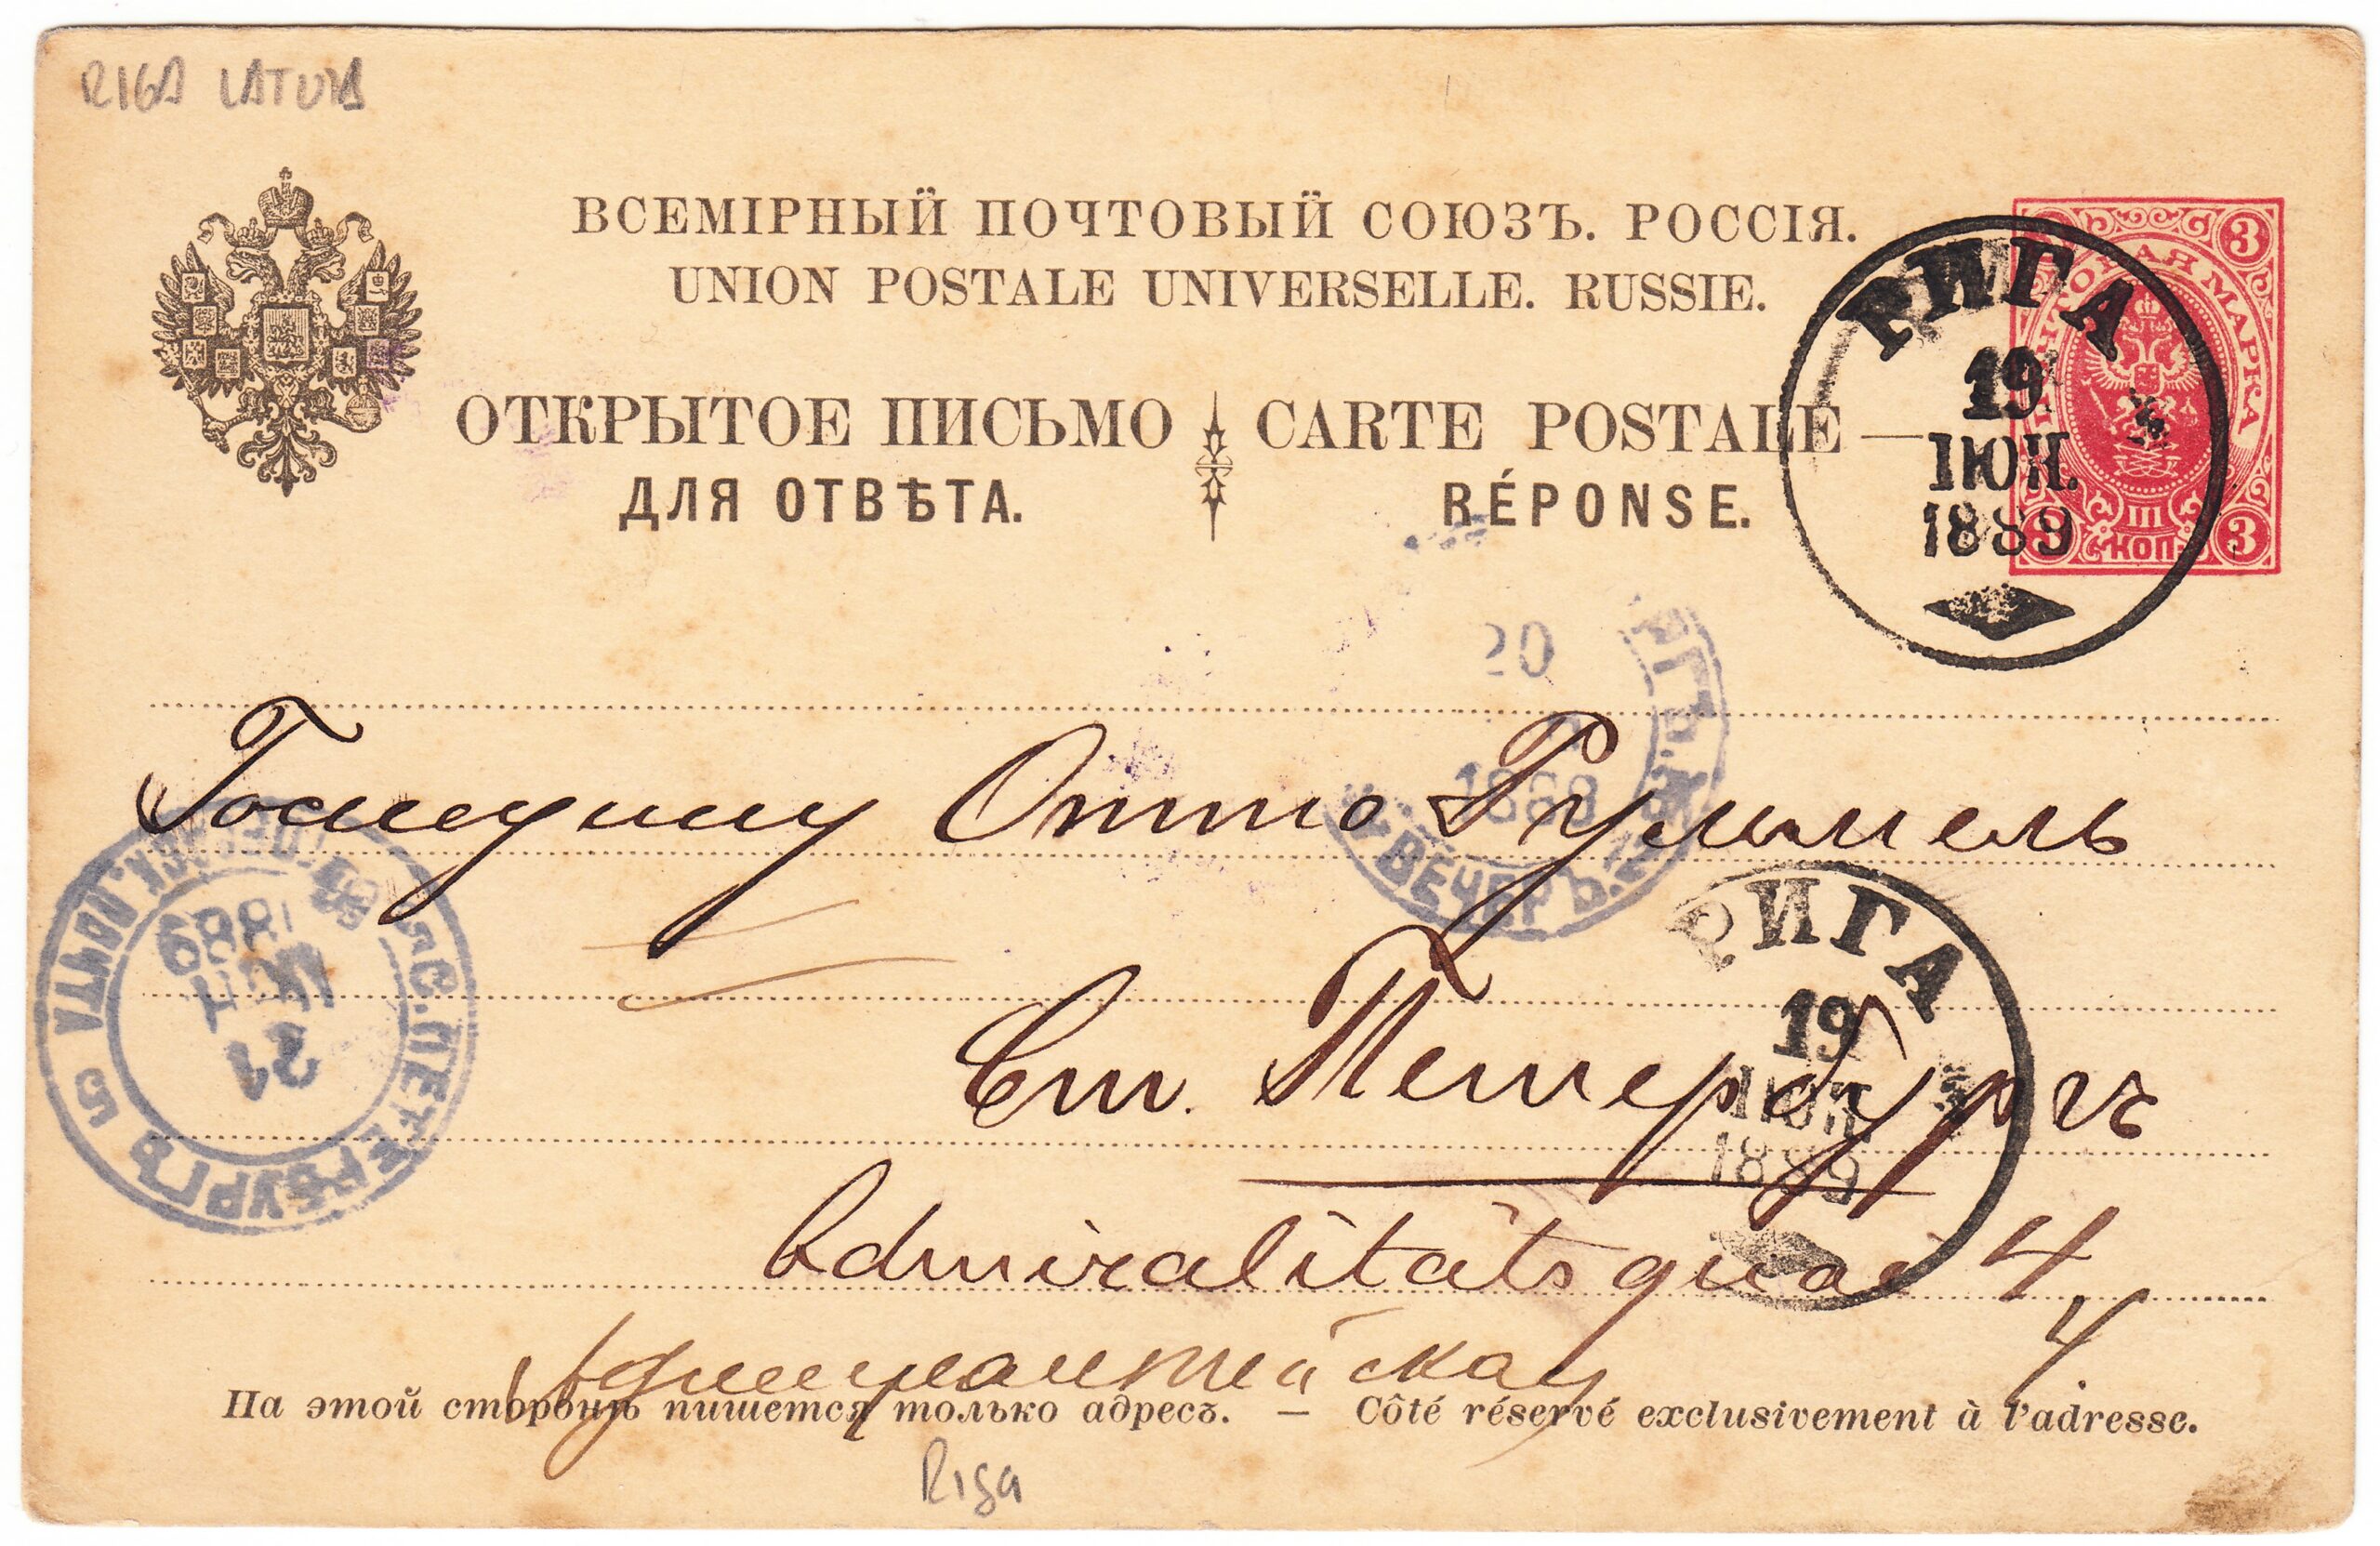 RIGA LATVIA
ВСЕМІРНЫЙ ПОЧТОВЫЙ СОЮЗЪ. РОССІЯ.
UNION POSTALE UNIVERSELLE. RUSSIE.
ОТКРЫТОЕ ПИСЬМО
ДЛЯ ОТВѢТА.
CARTE POSTALE
RÉPONSE.
МАРКА
3
3
III
КОП.
РИГА
19
ІЮН.
1889
20
ВЕЧЕРЪ
Господину Отто Руммель
С.ПЕТЕРБУРГЪ
ПОЧТА
21
1889
5
РИГА
19
ІЮН
1889
Ст. Петербургъ
Admiralitätsquai 4
4.
На этой сторонѣ пишется только адресъ. — Côté réservé exclusivement à l'adresse.
Riga